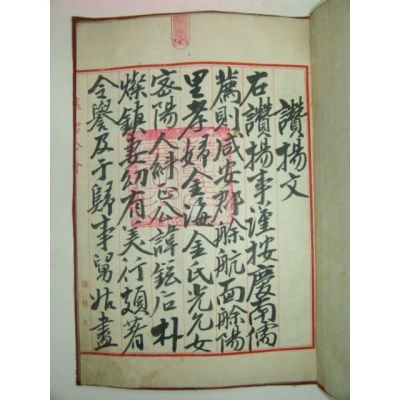 讚揚文
右讚揚事謹按慶南儒
薦則咸安郡艅航面艅陽
里孝婦金海金氏光允女
密陽人糾正公諱鋐后朴
燦鎮妻幼有美行頗著
令譽及于歸事舅姑盡